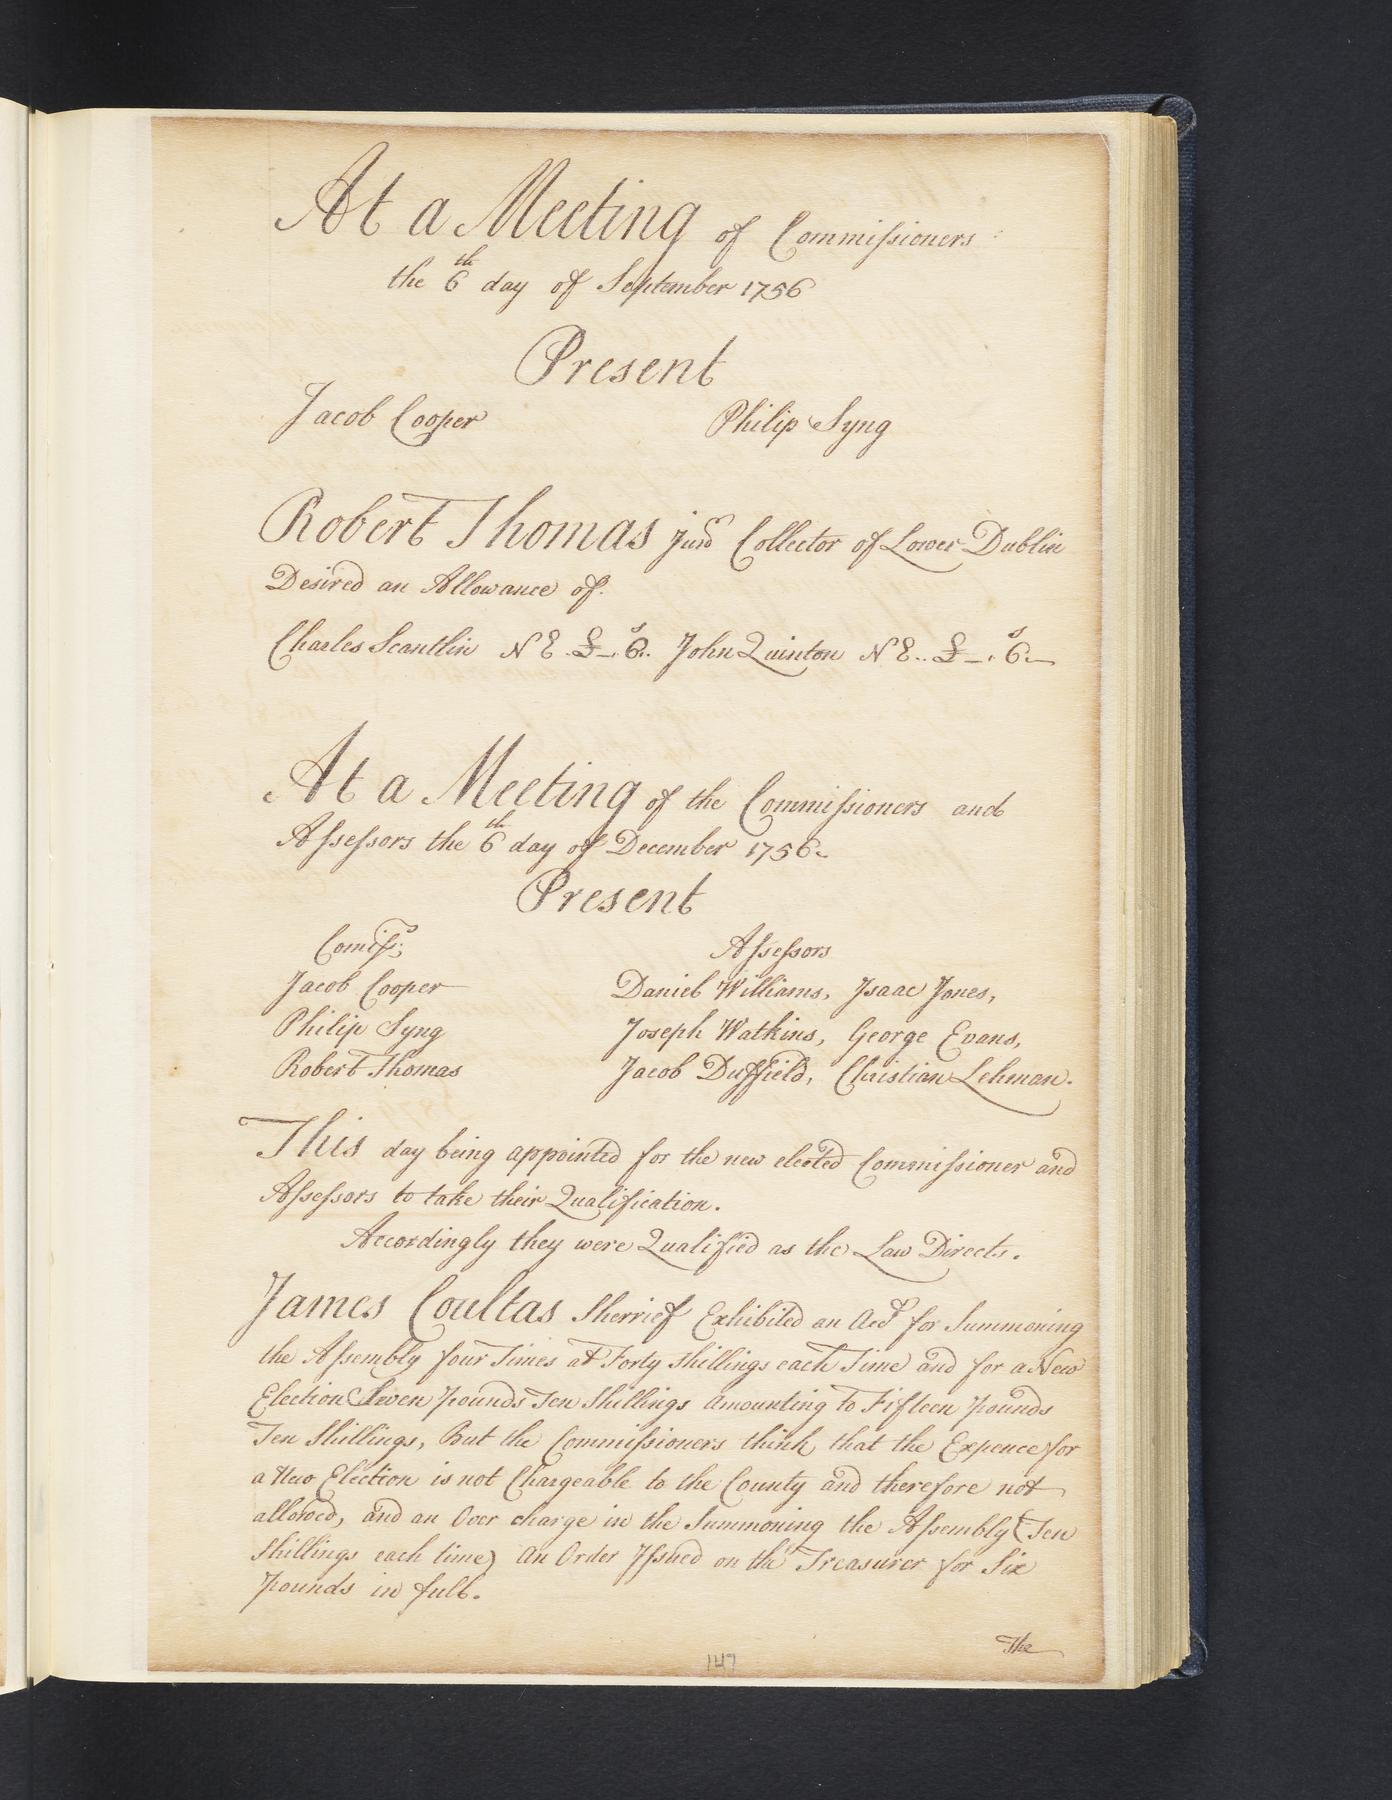 At a Meeting of Commissioners
the 6th day of September 1756
Present
Jacob Cooper Philip Syng
Robert Thomas junr Collector of Lower Dublin
Desired an Allowance of.
Charles Scantlin N E. £ _. 6s.. John Quinton N E.. £ _. 6s._
At a Meeting of the Commissioners and
Assessors the 6th day of December 1756.
Present
Comissrs Assessors
Jacob Cooper Daniel Williams, Isaac Jones,
Philip Syng Joseph Watkins, George Evans,
Robert Thomas Jacob Duffield, Christian Lehman.
This day being appointed for the new elected Commissioner and
Assessors to take their Qualification.
Accordingly they were Qualified as the Law Directs.
James Coultas Sherrief Exhibited an Acct for Summoning
the Assembly four Times at Forty shillings each Time and for a New
Election Seven pounds Ten Shillings amounting to Fifteen pounds
Ten Shillings, But the Commissioners think that the Expence for
a New Election is not Chargeable to the County and therefore not
allowed, and an Over charge in the Summoning the Assembly (Ten
shillings each time) an Order Issued on the Treasurer for Six
pounds in full.
The
147